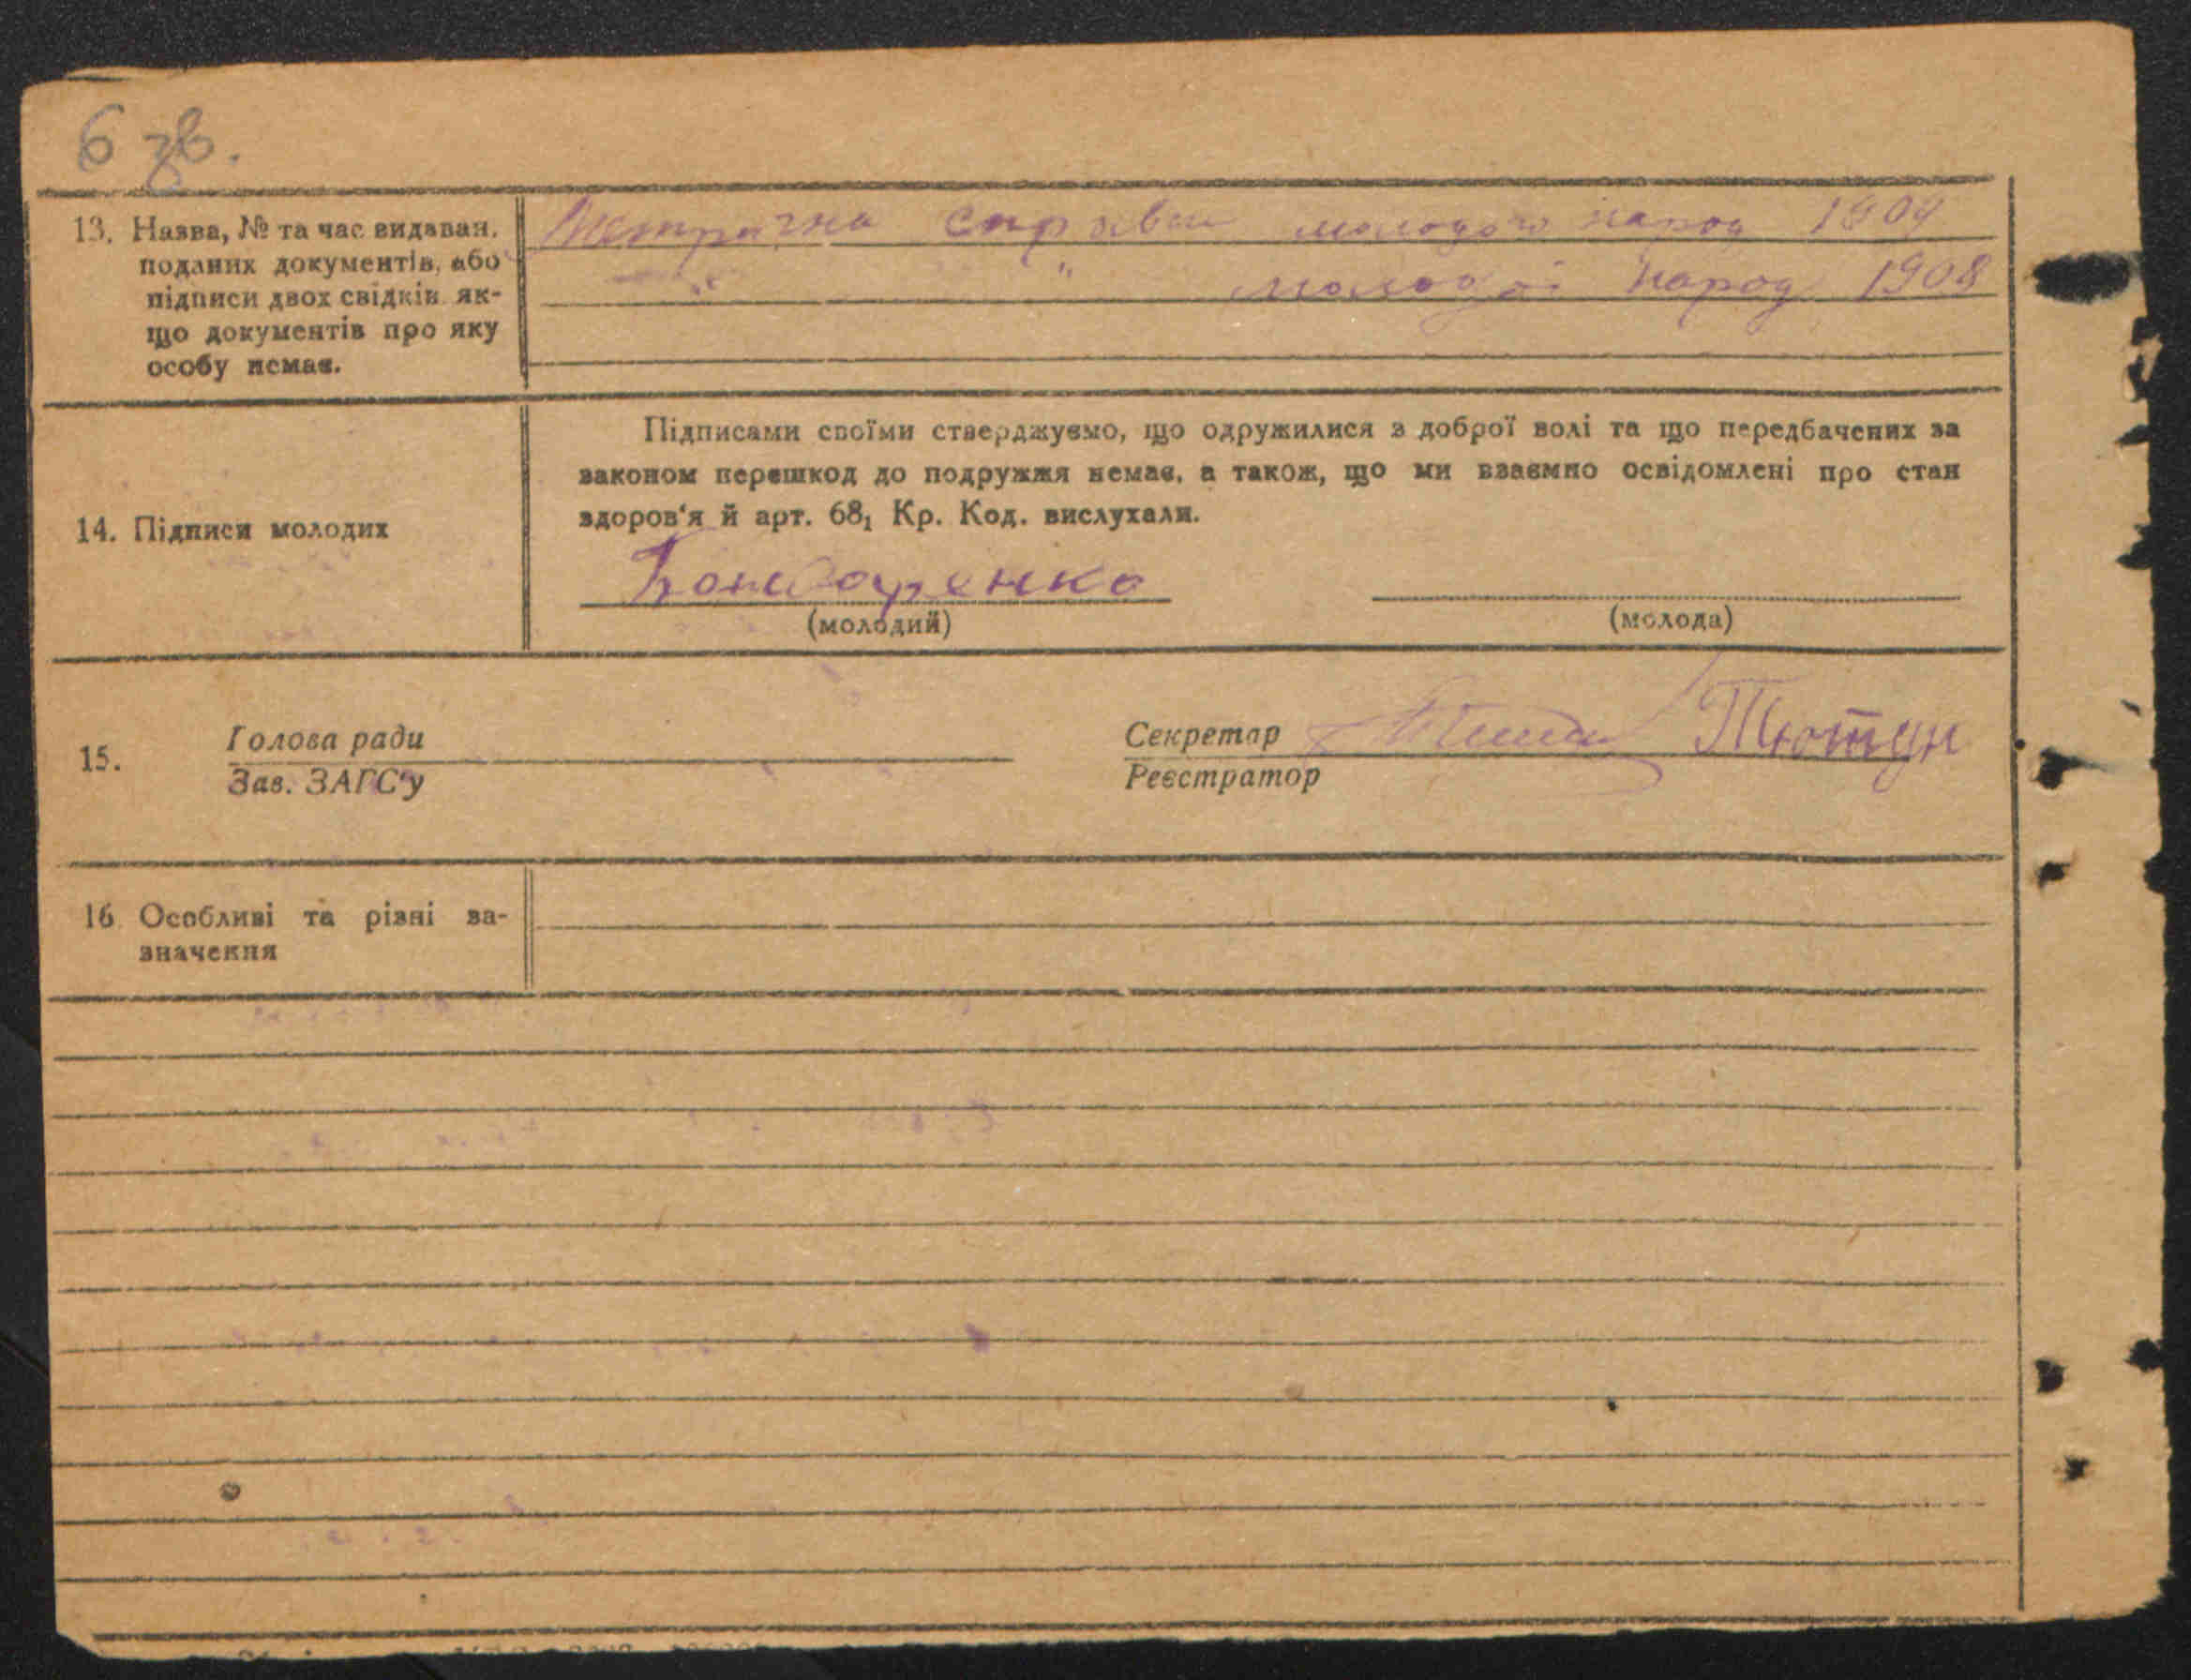 6 зв.
13. Назва, № та час видаван.
поданих документів, або
підписи двох свідків як-
що документів про яку
особу немає.
Метрична справка молодого народ 1904
" " молодої народ 1908
14. Підписи молодих
Підписами своїми стверджуємо, що одружилися з доброї волі та що передбачених за
законом перешкод до подружжя немає, а також, що ми взаємно освідомлені про стан
здоров'я й арт. 68₁ Кр. Код. вислухали.
Бондаренко
(молодий)
(молода)
15.
Голова ради
Зав. ЗАГС'у
Секретар Тютун
Реєстратор
16 Особливі та різні за-
значення